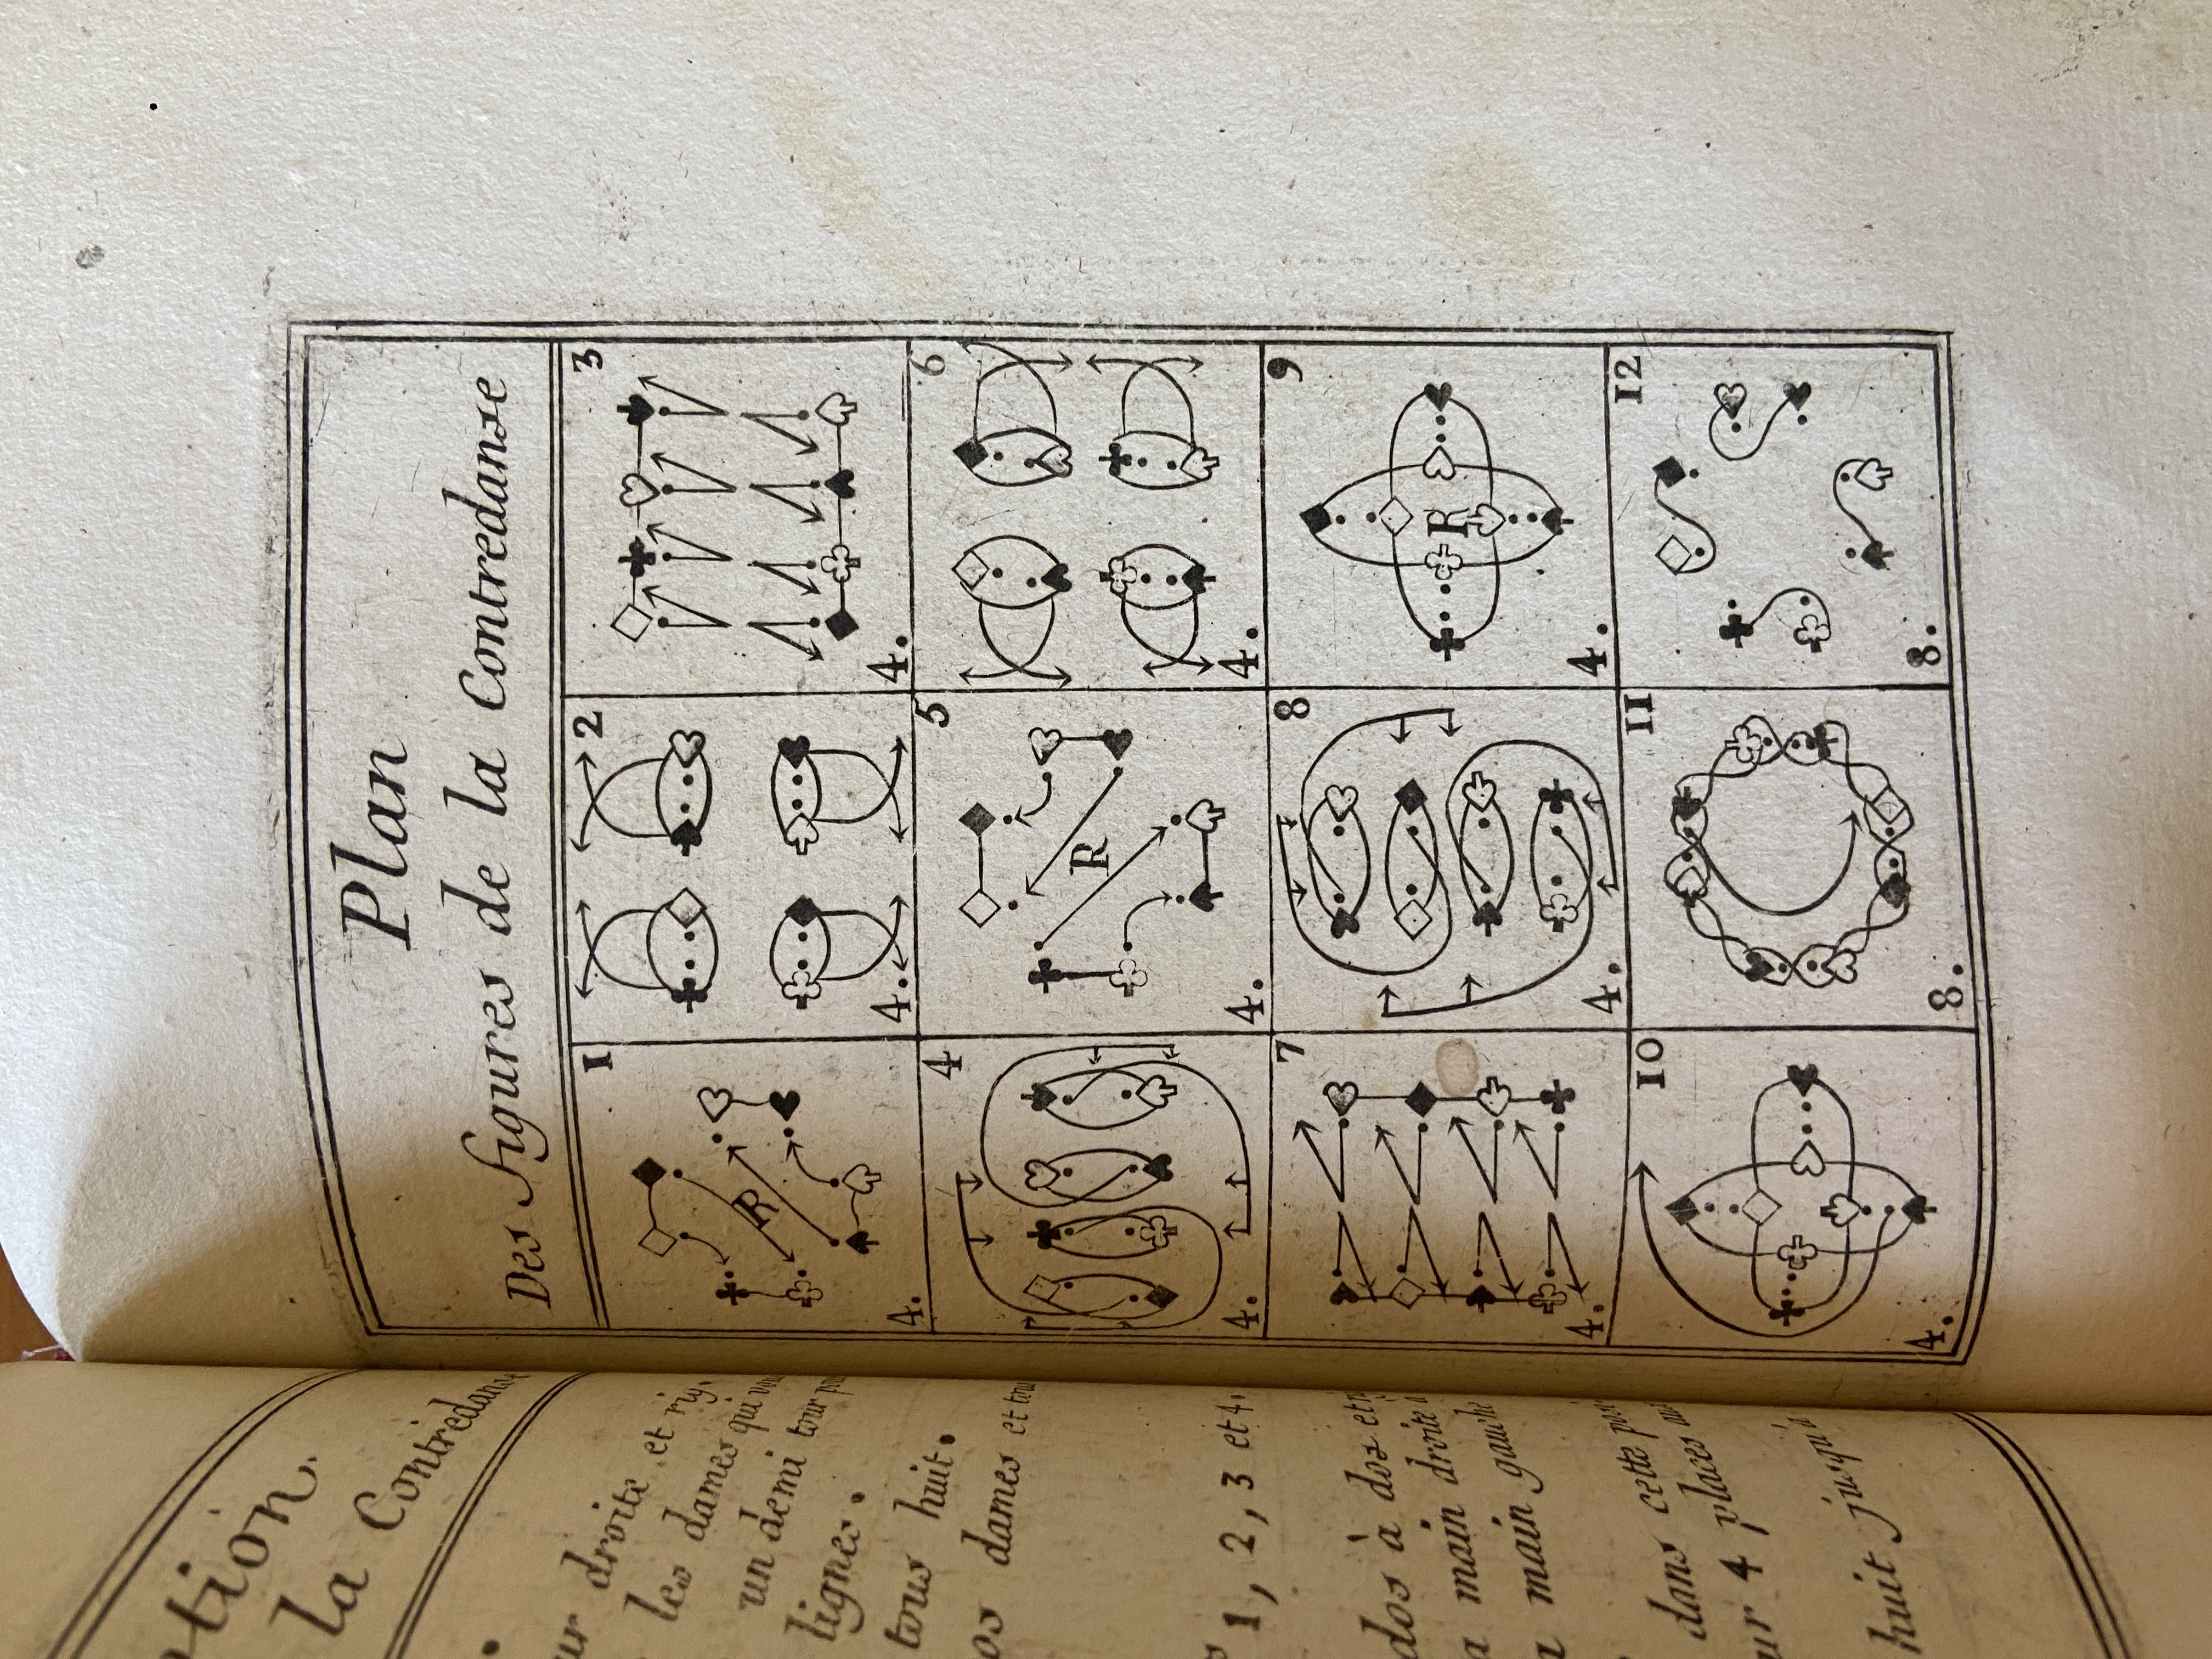 la Contredanse
droite, et
les dames qui
un demi tour
lignes.
tous huit.
dames et
1, 2, 3 et 4.
dos à dos et
main droite
main
dans cette
4 places
huit jusqu'à
Plan
Des figures de la Contredanse
1 2 3
R
4. 4. 4.
4 5 6
R
4. 4. 4.
7 8 9
R
4. 4. 4.
10 11 12
4. 8. 8.